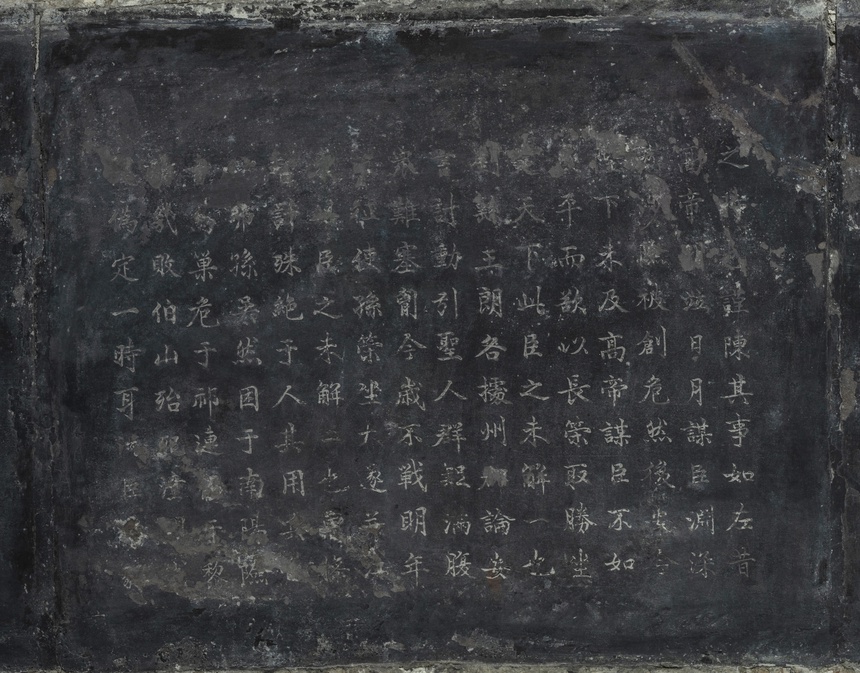 之謹陳其事如左昔
帝竝日月謀臣淵深
險被創危然後安今
下未及高帝謀臣不如
平而欲以長策取勝坐
天下此臣之未解一也
劉繇王朗各據州郡論安
言計動引聖人群疑滿腹
眾難塞胷今歲不戰明年
征使孫策坐大遂并江
臣之未解二也曹操
智計殊絕于人其用兵
彿孫吳然困于南陽險
烏巢危于祁連偪于黎
幾敗伯山殆死潼
偽定一時耳況臣